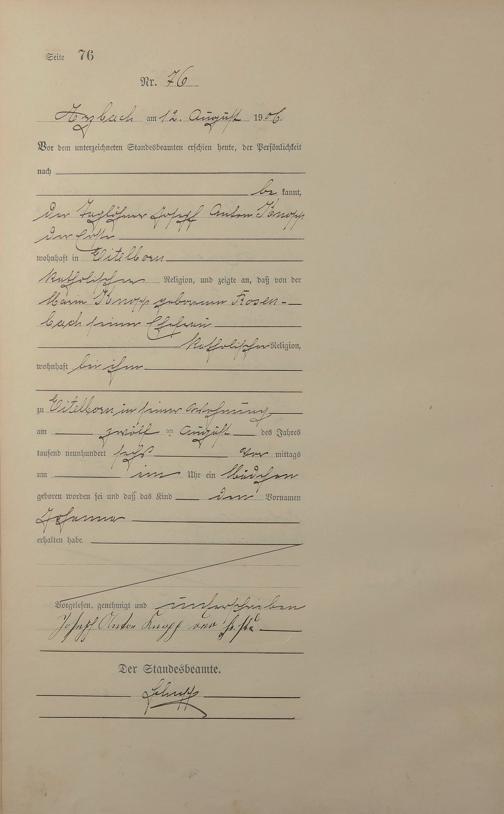 Seite 76
Nr. 76
Arzbach am 12. August 1906
Vor dem unterzeichneten Standesbeamten erschien heute, der Persönlichkeit
nach
be kannt,
der Taglöhner Joseph Anton Knopp
der Erste
wohnhaft in Eitelborn
katholischer Religion, und zeigte an, daß von der
Maria Knopp geborenen Rosen-
bach seiner Ehefrau
katholischer Religion,
wohnhaft bei ihm
zu Eitelborn in seiner Wohnung
am zwölf ten August des Jahres
tausend neunhundert sechs Vor mittags
um Uhr ein Mädchen
geboren worden sei und daß das Kind den Vornamen
Johanna
erhalten habe.
Vorgelesen, genehmigt und unterschrieben
Joseph Anton Knopp der Erste
Der Standesbeamte.